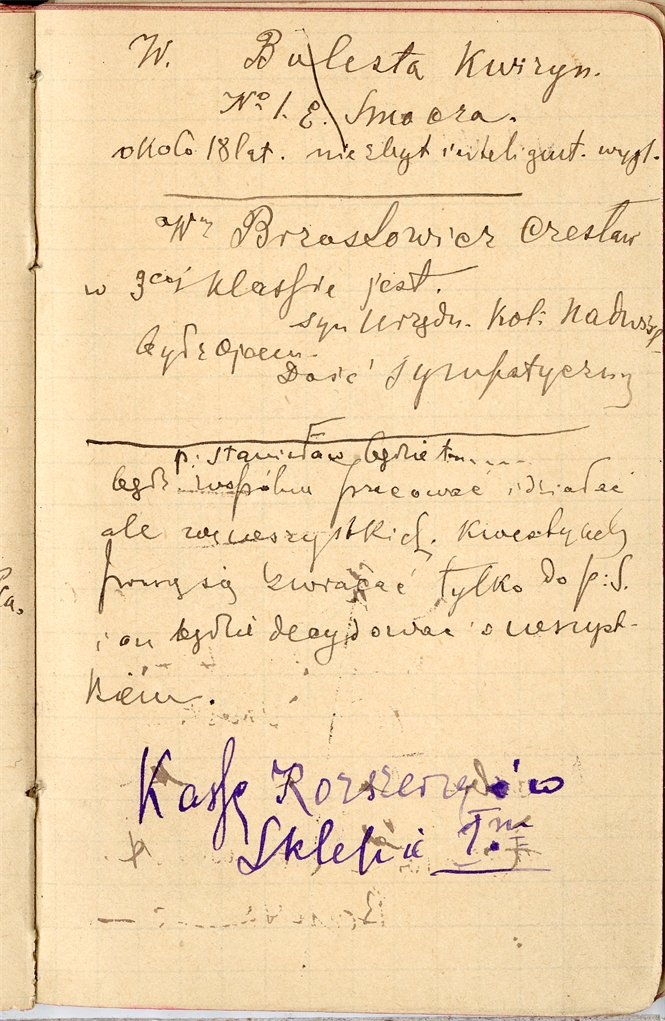 W. Bulesta Kwiryn.
No 1. E. Smocza.
około 18 lat. niezbyt inteligent. wygl.
Brzosłowicz Czesław
w 3ciej klassie jest.
syn Urzędn. Kol: Nadwiśl.
Dość sympatyczny
p. Stanisław będzie tu.....
będz. wspólnie pracować i działać
ale we wszystkich kwestyach
proszę się zwracać tylko do p. S.
i on będzie decydować o wszyst-
kiem.
Kassę Rozszerzyć
Sklepie I.m